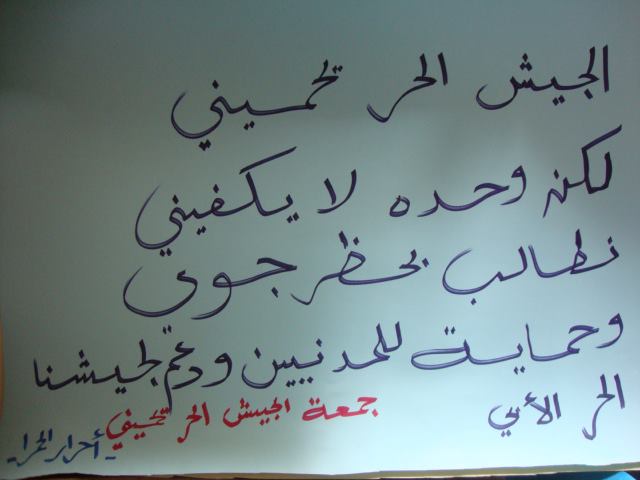 الجيش الحر تحميني
لكن وحده لا يكفيني
نطالب بحظر جوي
وحماية للمدنيين ودعم لجيشنا
الحر الأبي
جمعة الجيش الحر تحميني
-أحرار الحرا-